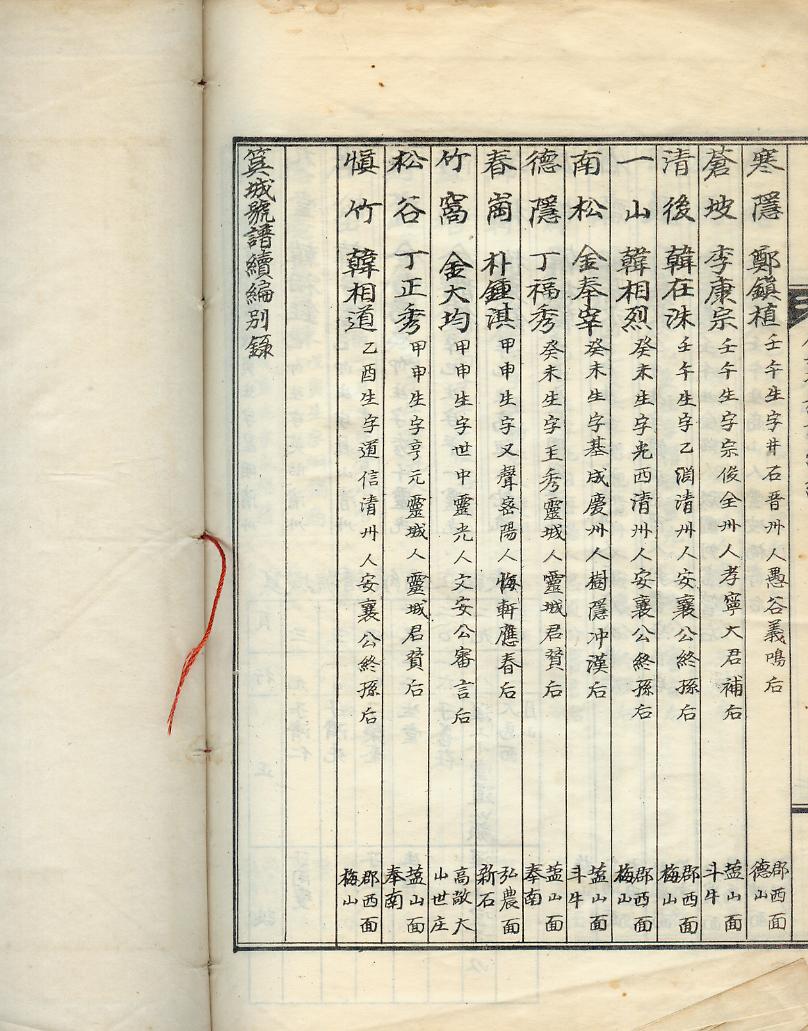 寒隱 鄭鎭植 壬午生字井石晋州人愚谷義鳴后 郡西面 德山
蒼坡 李康宗 壬午生字宗俊全州人孝寧大君補后 葢山面 斗牛
清後 韓在洙 壬午生字乙淵清州人安襄公終孫后 郡西面 梅山
一山 韓相烈 癸未生字光西清州人安襄公終孫后 郡西面 梅山
南松 金奉宰 癸未生字基成慶州人樹隱冲漢后 葢山面 斗牛
德隱 丁福秀 癸未生字王秀靈城人靈城君贇后 葢山面 奉南
春崗 朴鍾淇 甲申生字又聲密陽人悔軒應春后 弘農面 新石
竹窩 金大均 甲申生字世中靈光人文安公審言后 高敞大 山世庄
松谷 丁正秀 甲申生字亨元靈城人靈城君贇后 葢山面 奉南
愼竹 韓相道 乙酉生字道信清州人安襄公終孫后 郡西面 梅山
箕城號譜續編別錄